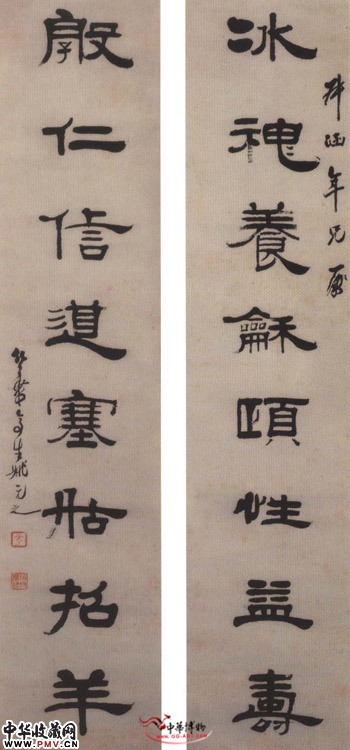 年兄屬
冰神養龢頤性益壽
仁信道塞招羊
竹葉亭生姚元之
中华收藏网
www.PMV.cn
中華博物
www.GG-ART.com